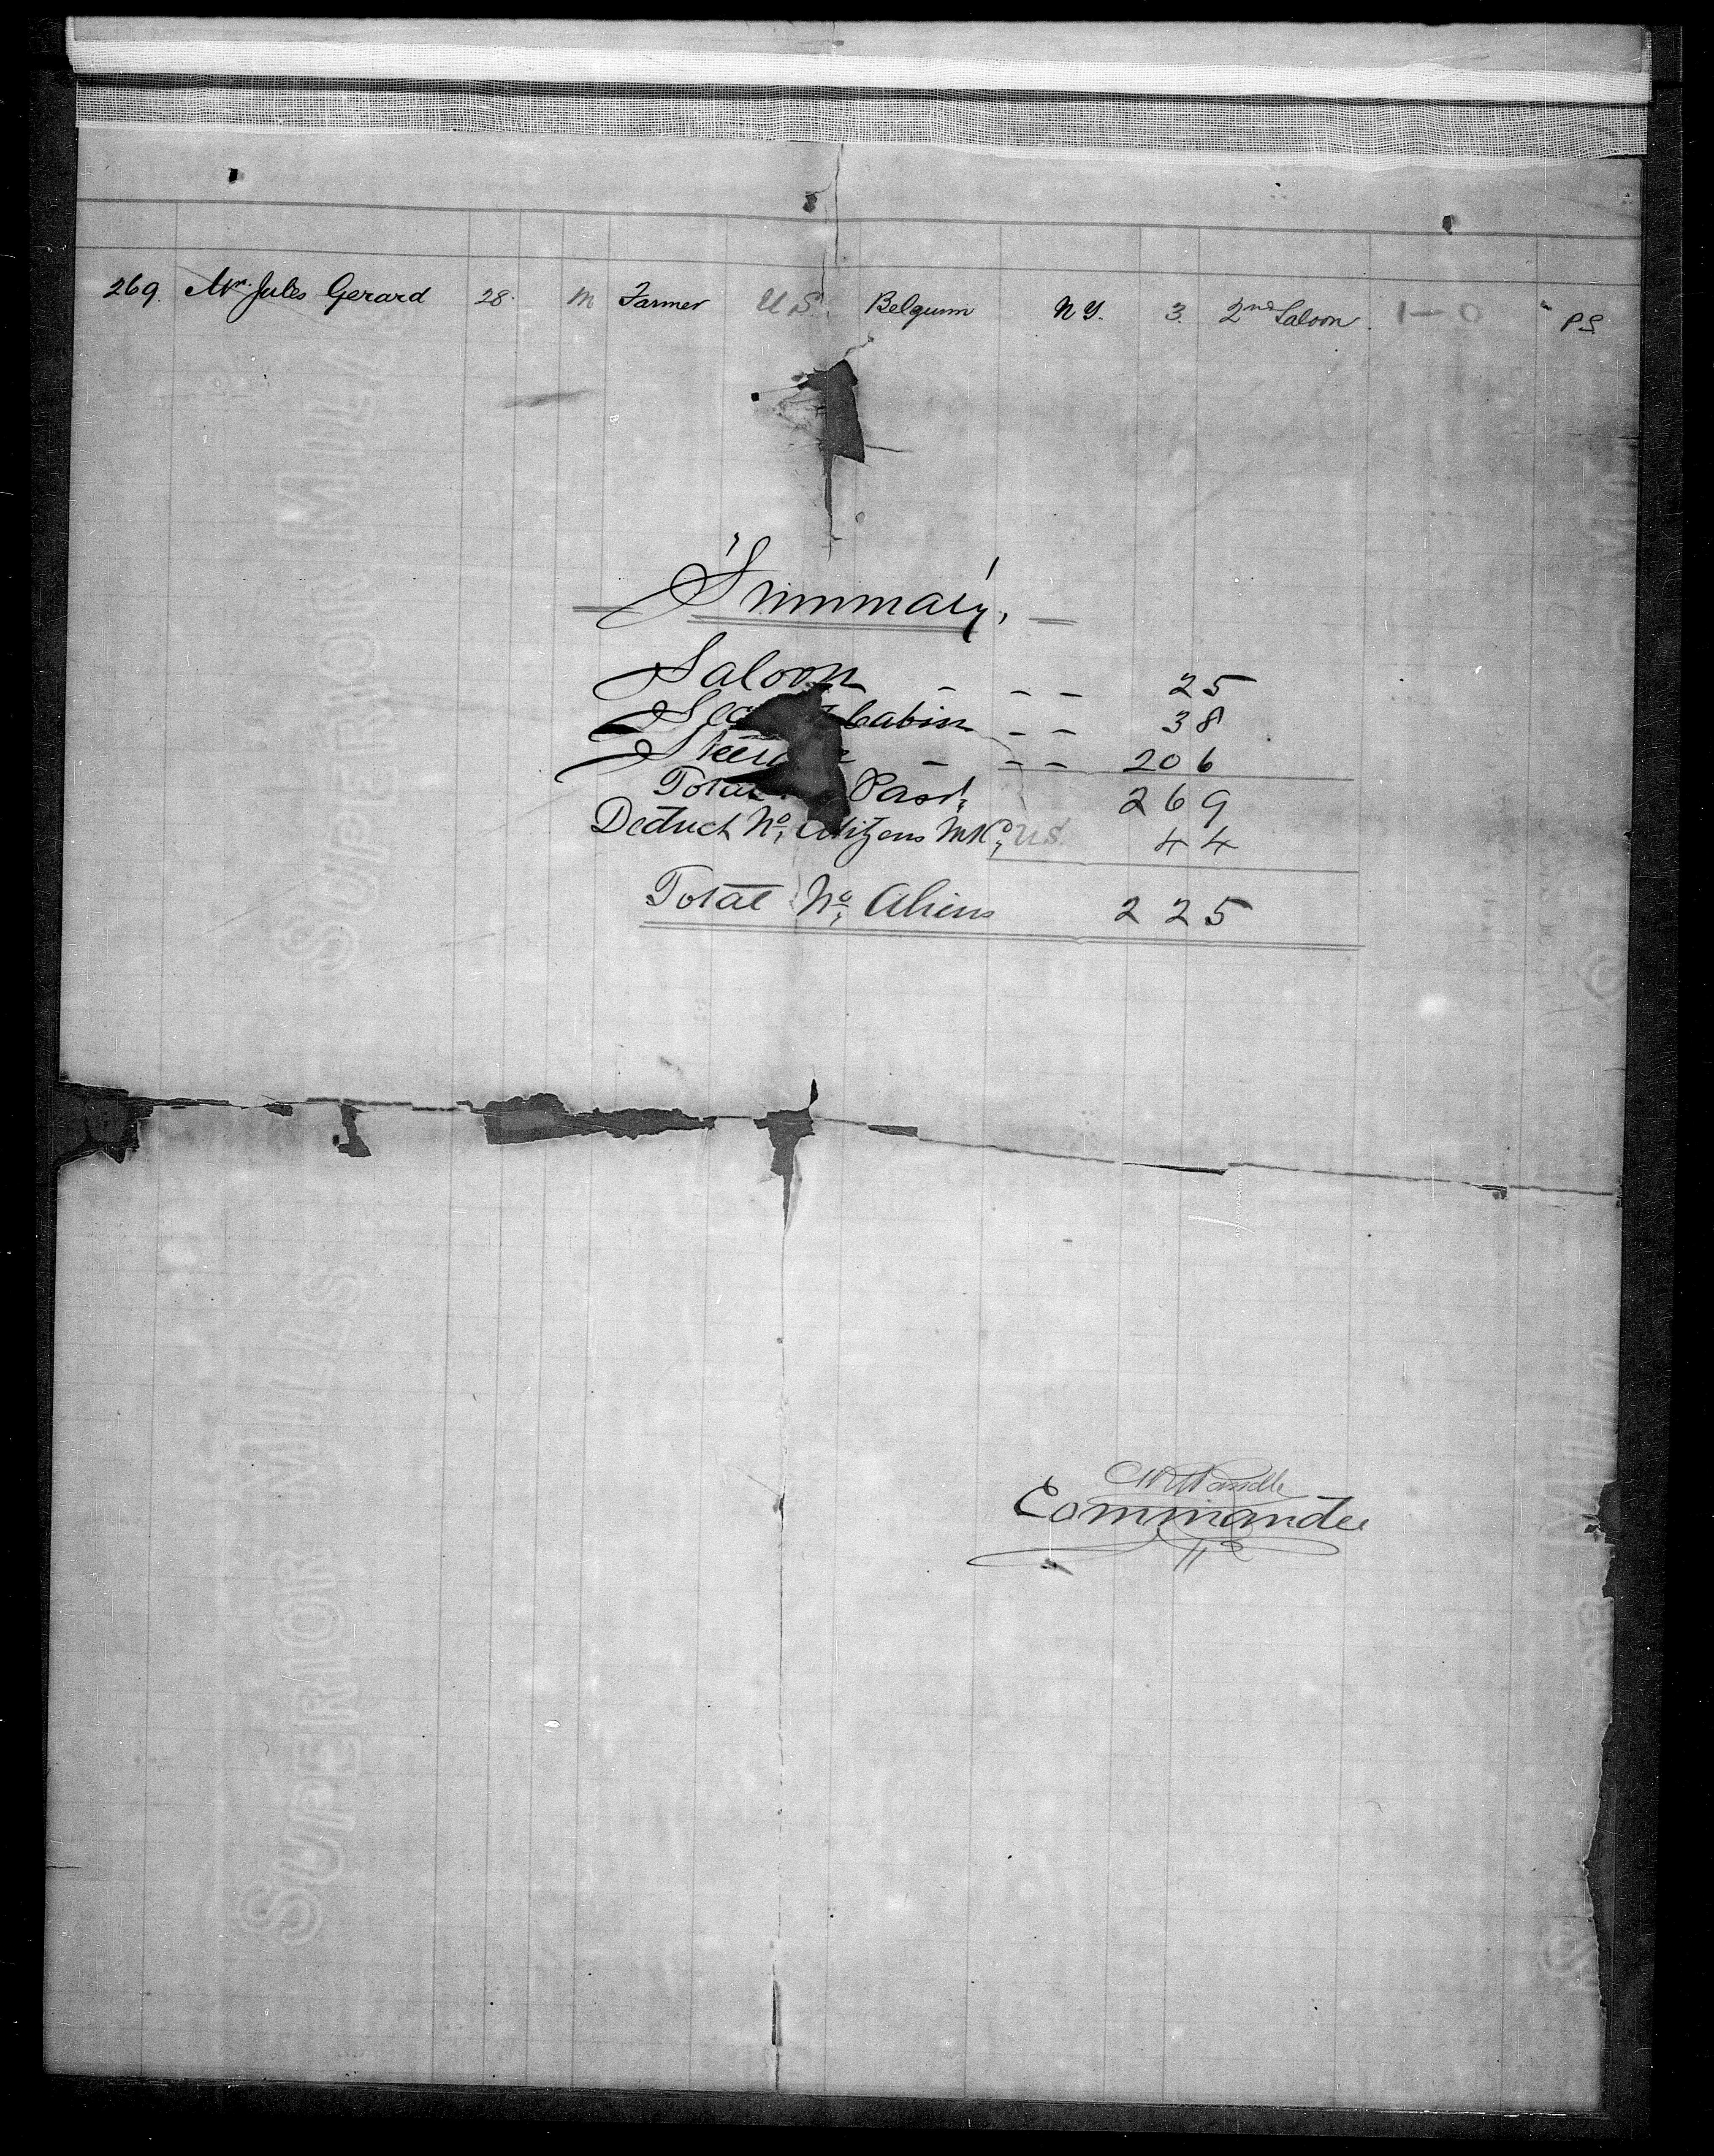 269. Mr. Jules Gerard 28. m Farmer U.S. Belgium N.Y. 3. 2nd Saloon. 1—0 " P.S.
Summary.
Saloon - - - 25
Cabin - - 38
- - - 206
Total Pasrs 269
Deduct No. Citizens U.S. 44
Total No. Aliens 225
Commander
SUPERIOR MILLS
SUPERIOR MILLS